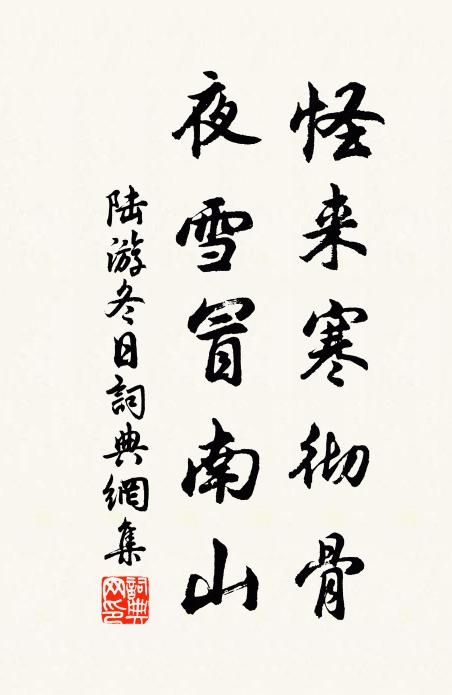 怪来寒彻骨
夜雪冒南山
陆游冬日詞典網集
詞典网印